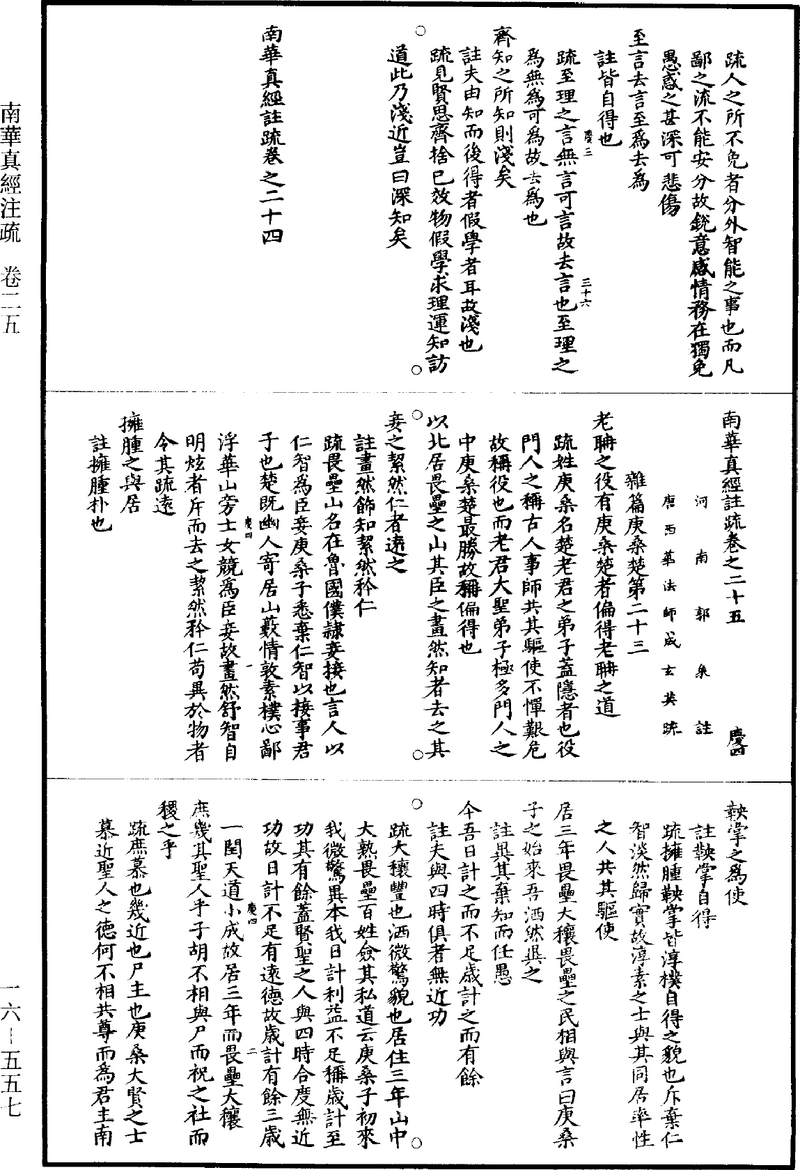 南華真經注疏　卷二五
一六－五五七
疏人之所不免者分外智能之事也而凡
鄙之流不能安分故銳意惑情務在獨免
愚惑之甚深可悲傷
至言去言至為去為
註皆自得也
疏至理之言無言可言故去言也至理之
慶三
三十六
為無為可為故去為也
齊知之所知則淺矣
註夫由知而後得者假學者耳故淺也
疏見賢思齊捨己效物假學求理運知訪
道此乃淺近豈曰深知矣
南華真經註疏卷之二十四
南華真經註疏卷之二十五
慶四
河南郭象註
唐西華法師成玄英疏
雜篇庚桑楚第二十三
老聃之役有庚桑楚者偏得老聃之道
疏姓庚桑名楚老君之弟子蓋隱者也役
門人之稱古人事師共其驅使不憚艱危
故稱役也而老君大聖弟子極多門人之
中庚桑楚最勝故稱偏得也
以北居畏壘之山其臣之畫然知者去之其
妾之絜然仁者遠之
註畫然飾知絜然矜仁
疏畏壘山名在魯國僕隸妾接也言人以
仁智為臣妾庚桑子悉棄仁智以接事君
子也楚既幽人寄居山藪情敦素樸心鄙
慶四
一
浮華山旁士女競為臣妾故畫然舒智自
明炫者斥而去之絜然矜仁苟異於物者
令其疏遠
擁腫之與居
註擁腫朴也
鞅掌之為使
註鞅掌自得
疏擁腫鞅掌皆淳樸自得之貌也斥棄仁
智淡然歸實故淳素之士與其同居率性
之人共其驅使
居三年畏壘大穰畏壘之民相與言曰庚桑
子之始來吾洒然異之
註異其棄知而任愚
今吾日計之而不足歲計之而有餘
註夫與四時俱者無近功
疏大穰豐也洒微驚貌也居住三年山中
大熟畏壘百姓僉其私道云庚桑子初來
我微驚異本我日計利益不足稱歲計至
功其有餘蓋賢聖之人與四時合度無近
功故日計不足有遠德故歲計有餘三歲
慶四
二
一閏天道小成故居三年而畏壘大穰
庶幾其聖人乎子胡不相與尸而祝之社而
稷之乎
疏庶慕也幾近也尸主也庚桑大賢之士
慕近聖人之德何不相共尊而為君主南